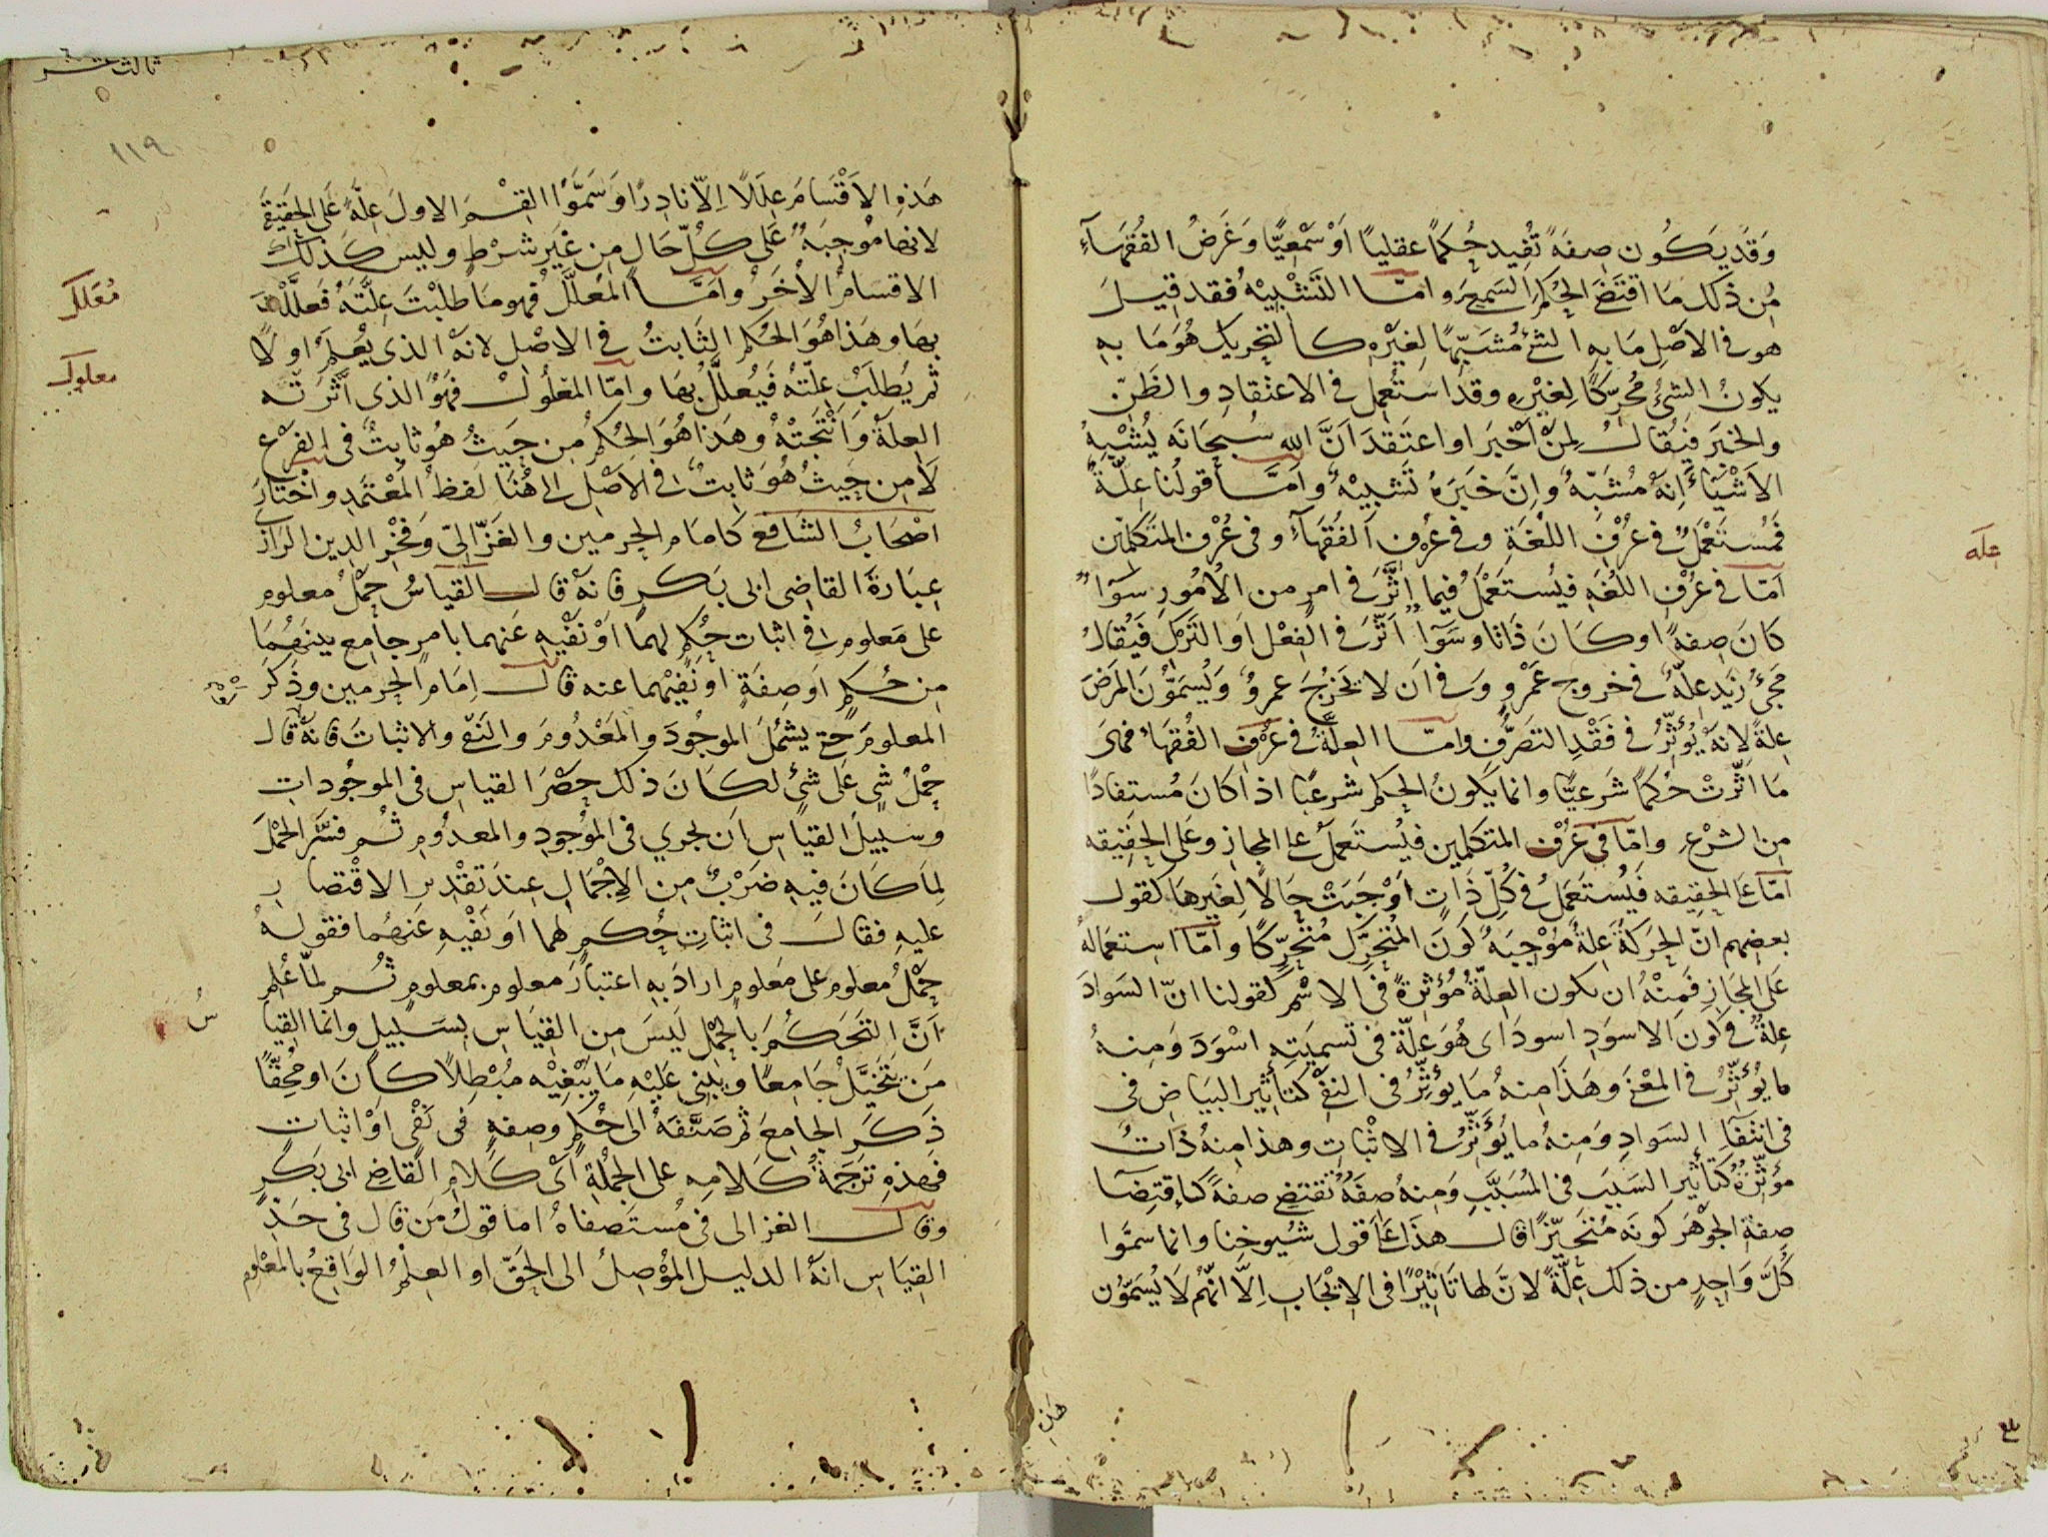 وَقَد يَكُون صِفَةً تُفِيد حُكماً عقلياً اَوْ سَمْعِيًّا وَغَرَضُ الفُقَهَآءِ
مِن ذلك مَا اقتَضَى الحُكمَ السَمعِىَ واما التَشْبِيْهُ فقد قِيلَ
هو فى الاَصْلِ مَا بِهِ الشئُ مُشَبِّهًا لِغَيْرِهِ كالتحريك هُوَ مَا بِهِ
يكونُ الشئُ مُحَرِّكًا لِغيْرِهِ وقد استُعمِل فى الاعتقادِ والظَنِّ
والخبَرِ فيُقالُ لِمَنْ اَخْبَرَ او اعتَقدَ اَنَّ الله سُبحَانَه يُشْبِهُ
الاَشْيَاءَ اِنهُ مُشَبِّهٌ وانَّ خَبَرَهُ تَشبِيْهٌ وَاَمَّا قولُنا عِلّةٌ
فَمُسْتَعْمَلٌ فى عُرْفِ اللُغَةِ وفى عُرْف الفُقَهَآءِ وفى عُرْفِ المتَكَلمين
اَمّا فى عُرْفِ اللُغَةِ فيُستَعْمَلُ فيما اثَّرَ فى امرٍ من الاُمُورِ سَوَآءٌ
كَانَ صِفةً او كَانَ ذَاتا وسَوَآءٌ اَثّرَ فى الفِعْل اَو التَركِ فَيُقالُ
مَجئُ زَيدٍ عِلّةٌ فى خروج عَمْرٍو وَفى اَن لا يَخرُجَ عمرٌو وَيُسَمّونَ المَرَضَ
عِلةً لِانَهُ يُؤَثِّرُ فى فَقْدِ التَصَرُّفِ وامّا العِلّةُ فى عُرْفِ الفُقَهَاءِ فهى
مَا اثّرَتْ حُكمًا شَرعيًّا وانما يَكونُ الحكم شرعيًا اذا كَانَ مُستفادًا
مِن الشرْعِ وامّا فى عُرْفِ المتكلمين فيُستَعمَلُ على المجازِ وعَلَى الحَقِيقه
اَمّا عَلى الحَقِيقه فَيُستَعمَلُ فى كُلّ ذَاتٍ اَوْجَبَتْ حَالًا لِغَيرِهَا كقول
بعضِهِم انّ الحَرَكَةَ عِلةٌ مُوْجِبَةٌ كونَ المُتحَرِّكِ مُتحَرّكًا وامّا استِعمالهُ
عَلى المجَازِ فَمِنْهُ ان يكون العِلّةُ مُؤثِرةً فى الاسْمِ كقولنا انّ السَوادَ
عِلةٌ فى كونَ الاسوَدِ اسود اى هُوَ عِلّةٌ فى تَسمِيَتِهِ اسْوَدَ وَمِنهُ
ما يُؤَثِّرُ فى المعْنَى وهَذَا مِنهُ مَا يؤَثِّرُ فى النفى كتاثير البَيَاضِ فى
فى انتِفَآءِ السَوادِ وَمِنهُ ما يُؤَثّرُ فى الاثْباتِ وهذا مِنهُ ذَاتٌ
مؤَثِّرَةٌ كتاثير السَبَبِ فى المُسَبَّبِ وَمِنهُ صِفَةٌ تَقتَضِى صفةً كاقتِضَآءِ
صِفةِ الجَوْهَر كونَه مُتحَيّزًا قال هذَا عَلى قول شُيُوخِنا وانما سمّوا
كُلَّ وَاحِدٍ من ذلك عِلّةً لانَّ لها تَاثِيْرًا فى الاِيْجَابِ اِلاَّ انّهُم لَا يُسَمّون
علة
هذه
هَذِهِ الاَقْسَامَ عِلَلًا اِلاّ نادِرًا وَسَمَّوْا القِسْمَ الاولَ عِلَّةً عَلى الحَقِيقَة
لانها مُوْجِبَةٌ عَلَى كُلّ حَالٍ مِن غَيْرِ شرْطٍ وليس كَذلكَ
الاقسامُ الاُخَرُ وَاَمَّا المُعَلَّلُ فهو مَا طلَبْتَ عِلَّتَهُ فَعلّلْتَه
بِهَا وهَذا هُوَ الحُكم الثَابتُ فى الاصْلِ لانهُ الذى يُعْلَمُ اولًا
ثُم يُطلَبُ عِلّتهُ فَيُعلَّلُ بِهَا وامّا المَعلُولُ فَهَوَ الذى اَثّرَتهُ
العِلّةُ وَاَنْتَجَتْهُ وهَذا هُوَ الحُكمُ مِن حَيثُ هُو ثابِتٌ فى الفرْعِ
لَا مِن حَيثُ هُوَ ثابِتٌ فى الاَصْلِ الى هُنَا لَفظُ المُعْتَمَدِ واختارَ
اصْحَابُ الشَافعى كَامَام الحرمين والغَزّالِىّ وَفخْرِ الدِين الرَازى
عِبَارَةَ القَاضِى ابى بَكرٍ فانهُ قال القيَاسُ حَمْلُ معلومٍ
على مَعلومٍ فى اثباتِ حُكمٍ لهما اَوْ نَفْيِهِ عَنهما بامرٍ جامعٍ بينَهُمَا
مِن حُكمٍ او صِفةٍ او نَفيِهما عنه قال اِمَام الحرمين وذَكَرَ
المعلومَ حتى يشمُلَ الموجُودَ والمَعْدُومَ والنَفى والاثباتَ فانهُ قال
حَمْلُ شىٍ عَلَى شىٍ لكانَ ذلك حَصْرَ القياسِ فى الموجُوداتِ
وسبيلُ القياسِ اَن يجرى فى الموُجودِ والمعدُومِ ثم فسَّرَ الحَمْلَ
لِمَا كانَ فيهِ ضَرْبٌ مِن الاِجْمَالِ عِندَ تقدِيرِ الاقتصارِ
عليهِ فقال فى اثباتِ حُكمٍ لهما اَو نَفْيِهِ عَنهُما فقوله
حَمْلُ مُعلومٍ على مَعلومٍ ارادَ بِهِ اعتبارَ معلومٍ بمعلومٍ ثُم لمّا عَلِم
اَنَّ التَحَكُمَ بالحَمْلِ لَيسَ مِن القِيَاسِ بِسَبِيلٍ وانما القِيا
مَن يَتَخيَّل جَامِعًا ويبنى عَلَيْهِ مَا يَبْغِيْه مُبْطِلًا كانَ او مُحِقًّا
ذَكَرَ الجامِعَ ثم صَنَّفَهُ الى حُكمٍ وصِفةٍ فى نَفْىٍ اَوْ اثباتٍ
فهذهِ تَرْجَمَةُ كَلامِهِ على الجُمْلةِ اَىْ كَلامِ القَاضِى ابى بَكرٍ
وقال الغزالى فى مُستَصفَاهُ اما قولُ مَن قال فى حَدّ
القِيَاسِ انهُ الدليل المُوْصِلُ الى الحَقّ او العِلْمُ الوَاقعُ بالمَعْلوم
ثالث عشر
١١٩
مُعَلل
معلول
سُ